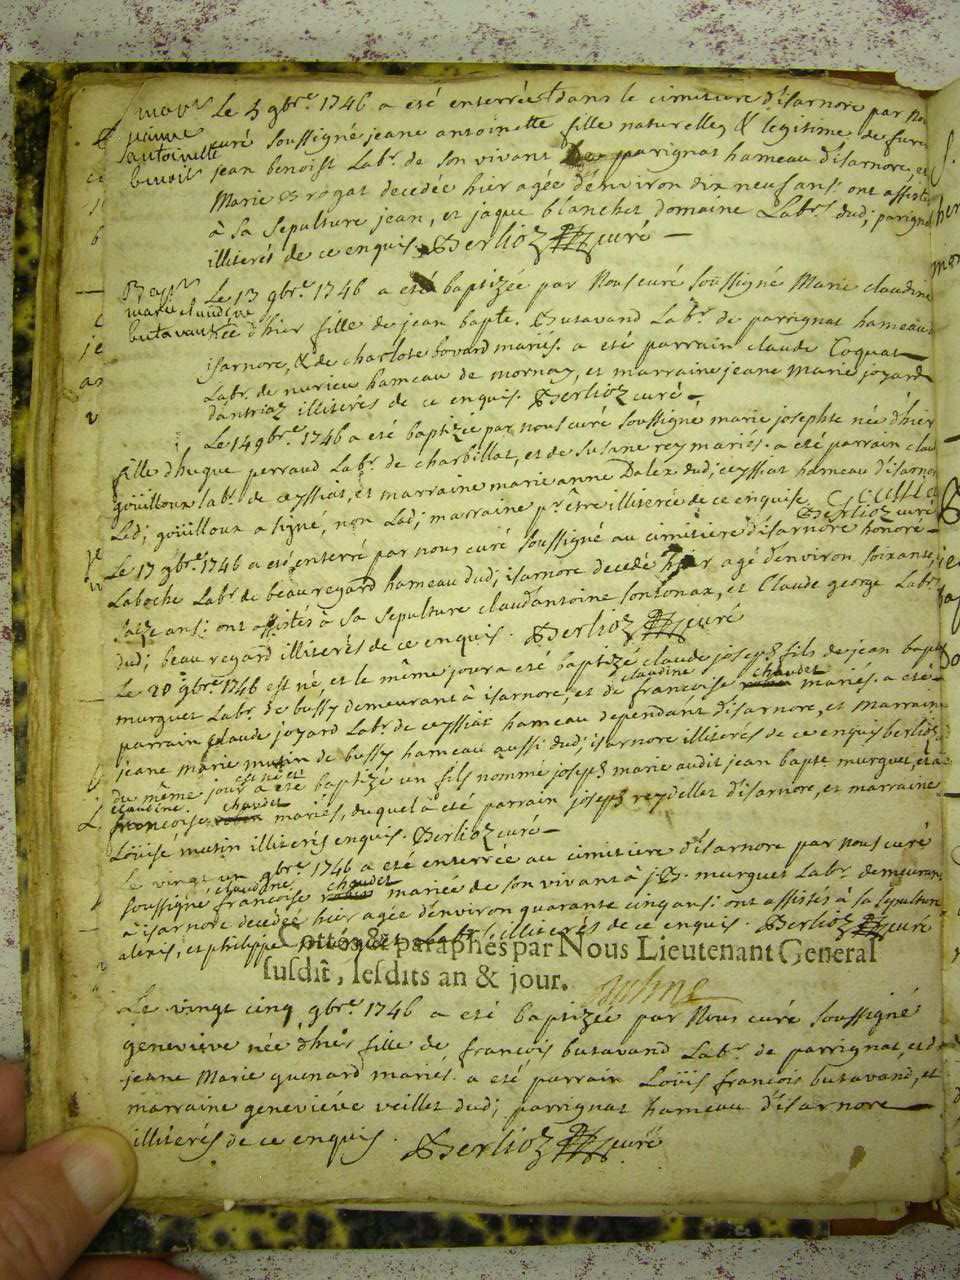 Le 3 9bre. 1746 a eté enterrée dans le cimitiere d'isarnore par
curé soussigné jeane antoinette fille naturelle, & legitime de
jean benoist Labr. de son vivant parignat hameau d'isarnore, et
Marie brogat decedée hier agée d'environ dix neuf ans: ont assistés
à sa sepulture jean, et jaque blanchet domaine Labrs. dud; parignat
illiterés de ce enquis. Berlioz curé
Bapt.
marie claudine
butavand
Le 13 9bre. 1746 a eté baptizée par Nous curé soussigné Marie claudine
née d'hier fille de jean bapte. Butavand Labr. de parrignat hameau
isarnore, & de charlote bovard mariés. a été parrain claude Coquat
Labr. de nurieu hameau de mornay, et marraine jeane marie joyard
dantriaz illiterés de ce enquis. Berlioz curé
Le 14 9bre. 1746 a eté baptizée par nous curé soussigné marie josephte née d'hier
fille d'hugue perraud Labr. de charbillat, et de susane rey mariés. a eté parrain
goüilloux labr. de ceyssiat, et marraine marie anne Dalex dud; ceyssiat hameau d'isarnore
Led; goüilloux a signé, non Lad; marraine pr. être illiterée de ce enquise
Berlioz curé
Le 17 9bre. 1746 a eté enterré par nous curé soussigné au cimitiere d'isarnore honoré
Laboche Labr. de beauregard hameau dud; isarnore decedé hier agé d'environ soixante
saize ans: ont assistés à sa sepulture claud'antoine sontonax, et Claude george Labrs.
dud; beauregard illiterés de ce enquis. Berlioz curé
Le 20 9bre. 1746 est né et le même jour a eté baptizé claude joseph fils de jean bapte
claudine chaudet
murguet Labr. de bussy demeurant à isarnore, et de francoise mariés. a eté
parrain claude joyard Labr. de ceyssiat hameau dependant d'isarnore, et marraine
jeane marie mutin de bussy hameau aussi dud; isarnore illiterés de ce enquis berlioz
est né et
du même jour a eté baptizé un fils nommé joseph marie audit jean bapte murguet, et à
claudine chaudet
francoise mariés, duquel à eté parrain joseph reydellet d'isarnore, et marraine
Loüise mutin illiterés enquis. Berlioz curé
Le vingt un 9bre. 1746 a eté enterrée au cimitiere d'isarnore par nous curé
claudine chaudet
soussigné francoise mariée de son vivant à j. B. murguet Labr. demeurant
à isarnore decedée hier agée d'environ quarante cinq ans: ont assistés à sa sepulture
alexis, et philippe Labrs. illiterés de ce enquis. Berlioz curé
Cottés & paraphés par Nous Lieutenant General
susdit, lesdits an & jour.
Le vingt cinq 9bre. 1746 a eté baptizée par Nous curé soussigné
geneviève née d'hier fille de francois butavand Labr. de parrignat, et de
jeane Marie guenard mariés. a eté parrain Loüis francois butavand, et
marraine geneviéve veillet dud; parrignat hameau d'isarnore
illiterés de ce enquis. Berlioz curé